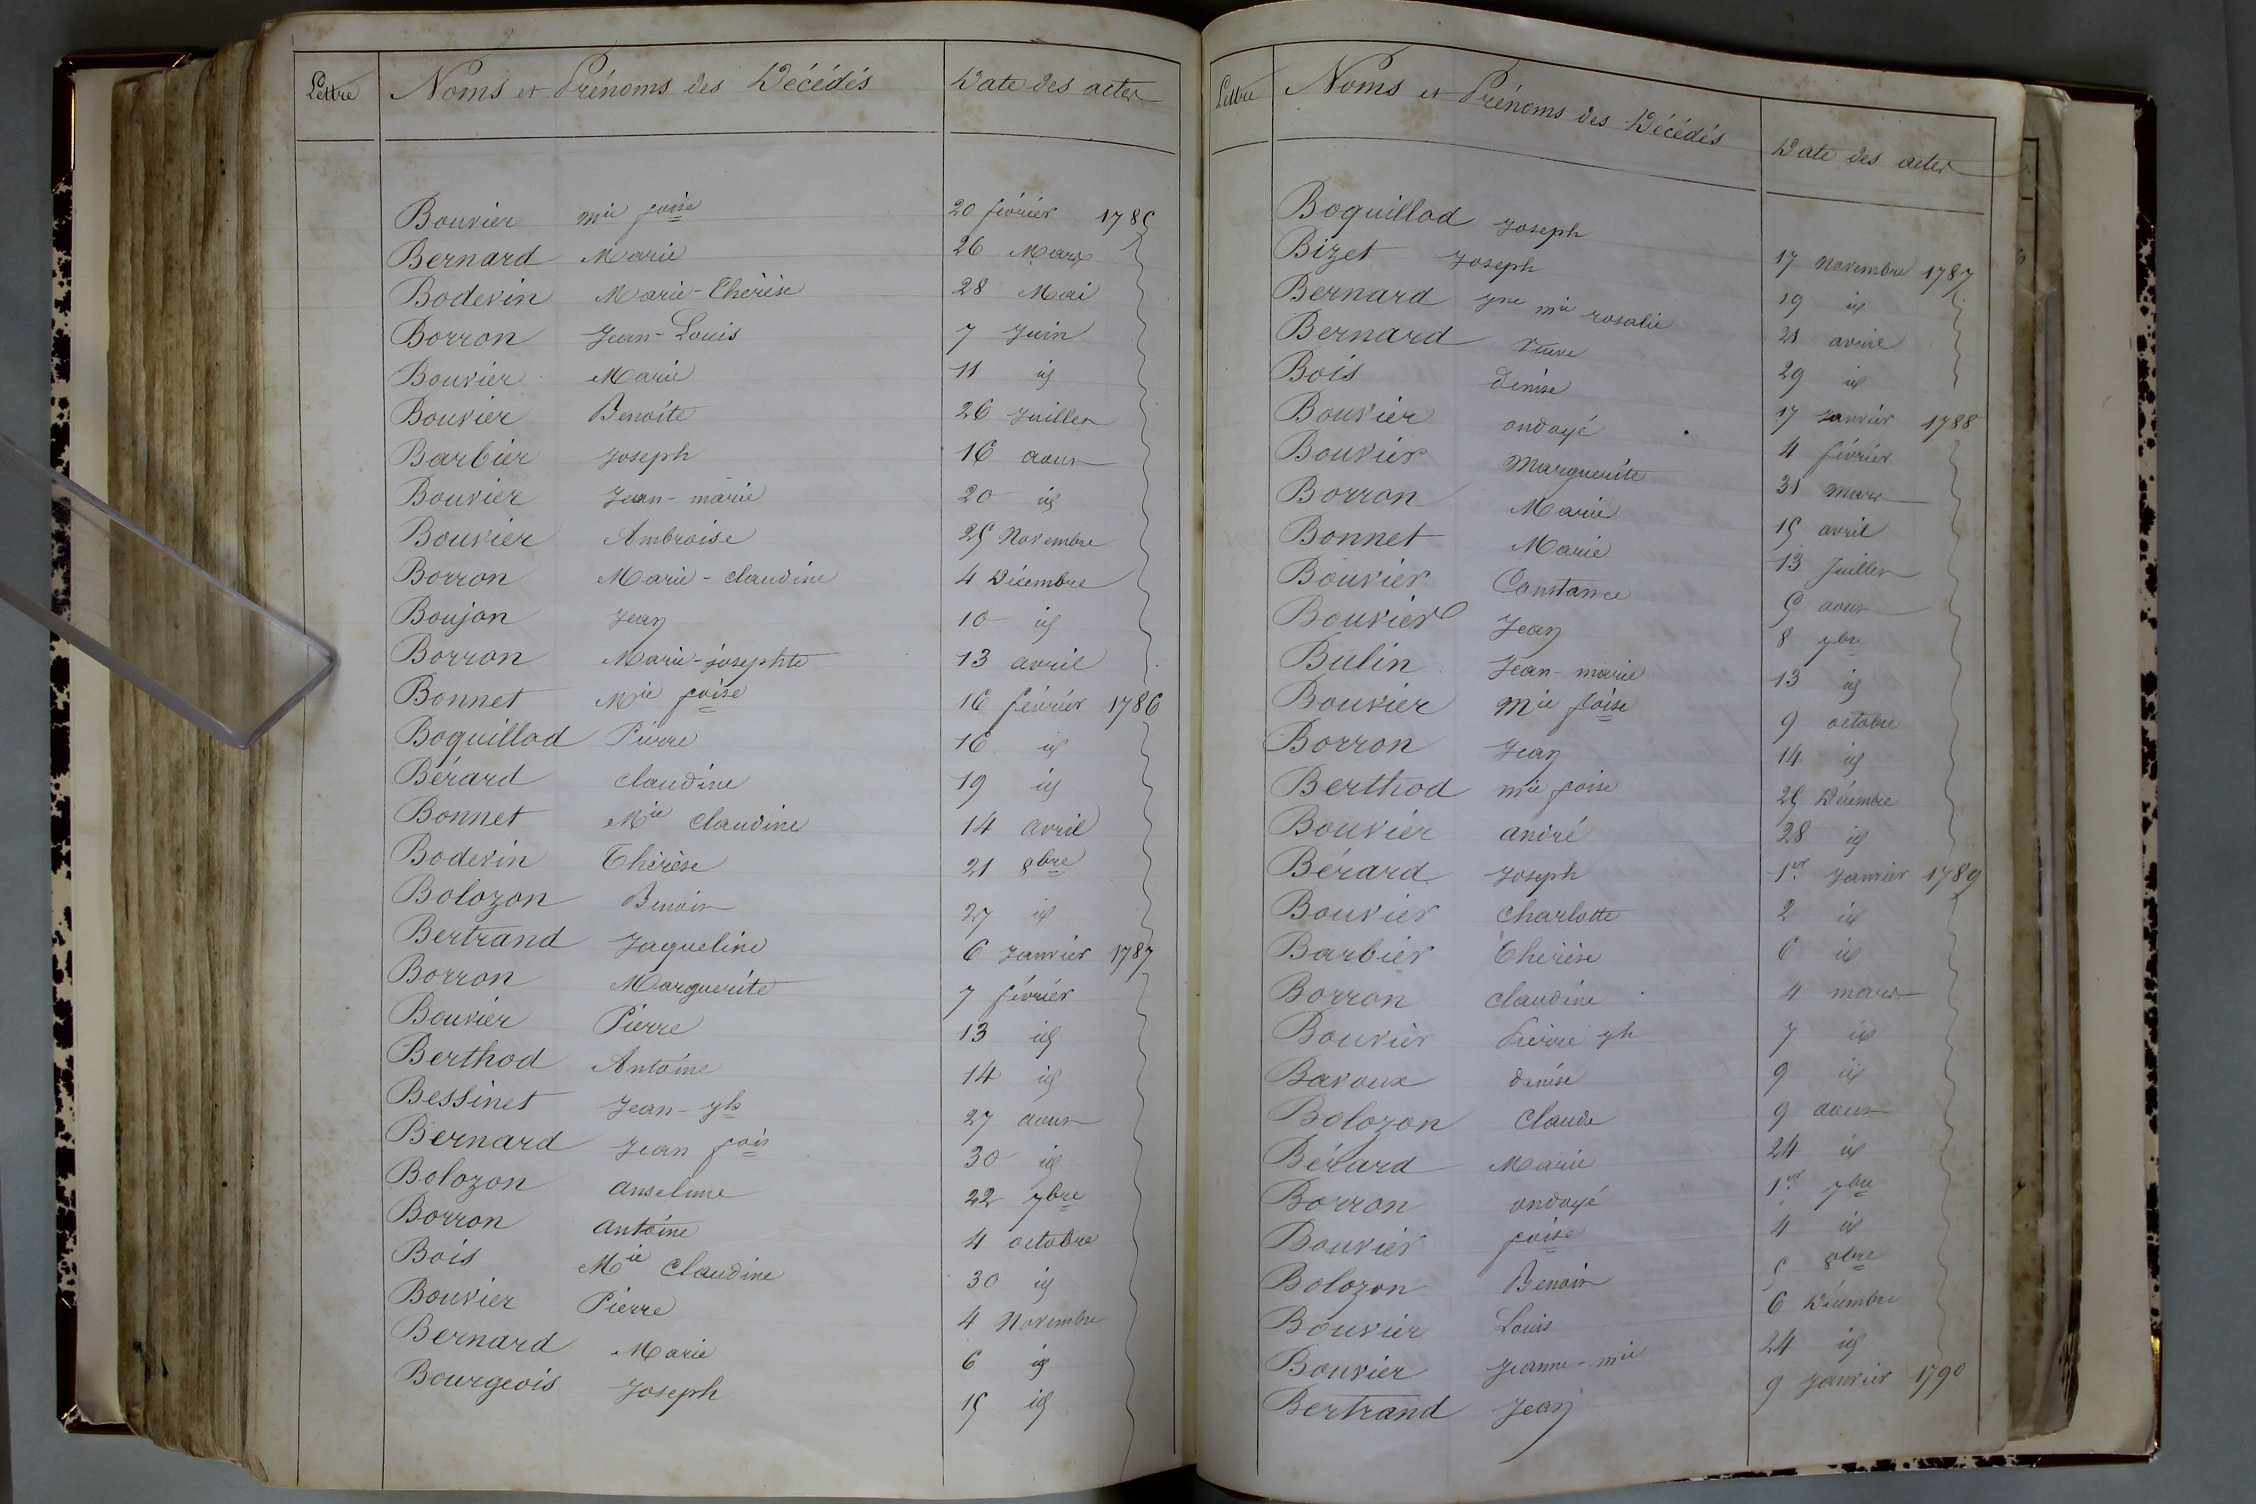 Lettre Noms et Prénoms des Décédés Date des actes
Bouvier mie foise 20 février 1785
Bernard Marie 26 Mars
Bodevin Marie-Thérèse 28 Mai
Borron Jean-Louis 7 Juin
Bouvier Marie 11 id
Bouvier Benoite 26 Juillet
Barbier Joseph 16 aout
Bouvier Jean-marie 20 id
Bouvier Ambroise 25 Novembre
Borron Marie-claudine 4 Décembre
Boujon Jean 10 id
Borron Marie-josephte 13 avril
Bonnet Mie foise 16 février 1786
Boquillod Pierre 16 id
Bérard claudine 19 id
Bonnet Mie claudine 14 avril
Bodevin Thérèse 21 8bre
Bolozon Benoit 27 id
Bertrand Jaqueline 6 Janvier 1787
Borron Marguerite 7 février
Bouvier Pierre 13 id
Berthod Antoine 14 id
Bessinet Jean-jh 27 aout
Bernard Jean fois 30 id
Bolozon anselme 22 7bre
Borron antoine 4 octobre
Bois Mie Claudine 30 id
Bouvier Pierre 4 Novembre
Bernard Marie 6 id
Bourgeois Joseph 15 id
Lettre Noms et Prénoms des Décédés Date des actes
Boquillod Joseph 17 Novembre 1787
Bizet Joseph 19 id
Bernard Jne mie rosalie 21 avril
Bernard veuve 29 id
Bois denise 17 Janvier 1788
Bouvier ondoyé 4 février
Bouvier Marguerite 31 mars
Borron Marie 15 avril
Bonnet Marie 13 Juillet
Bouvier Constance 5 aout
Bouvier Jean 8 7bre
Bulin Jean-marie 13 id
Bouvier Mie foise 9 octobre
Borron Jean 14 id
Berthod mie foise 25 Décembre
Bouvier andré 28 id
Bérard Joseph 1er Janvier 1789
Bouvier Charlotte 2 id
Barbier Thérèse 6 id
Borron claudine 4 mars
Bouvier Pierre jh 7 id
Bavoux denise 9 id
Bolozon Claude 9 aout
Bérard Marie 24 id
Borron ondoyé 1er 7bre
Bouvier foise 4 id
Bolozon Benoit 5 8bre
Bouvier Louis 6 Décembre
Bouvier Jeanne-mie 24 id
Bertrand Jean 9 Janvier 1790